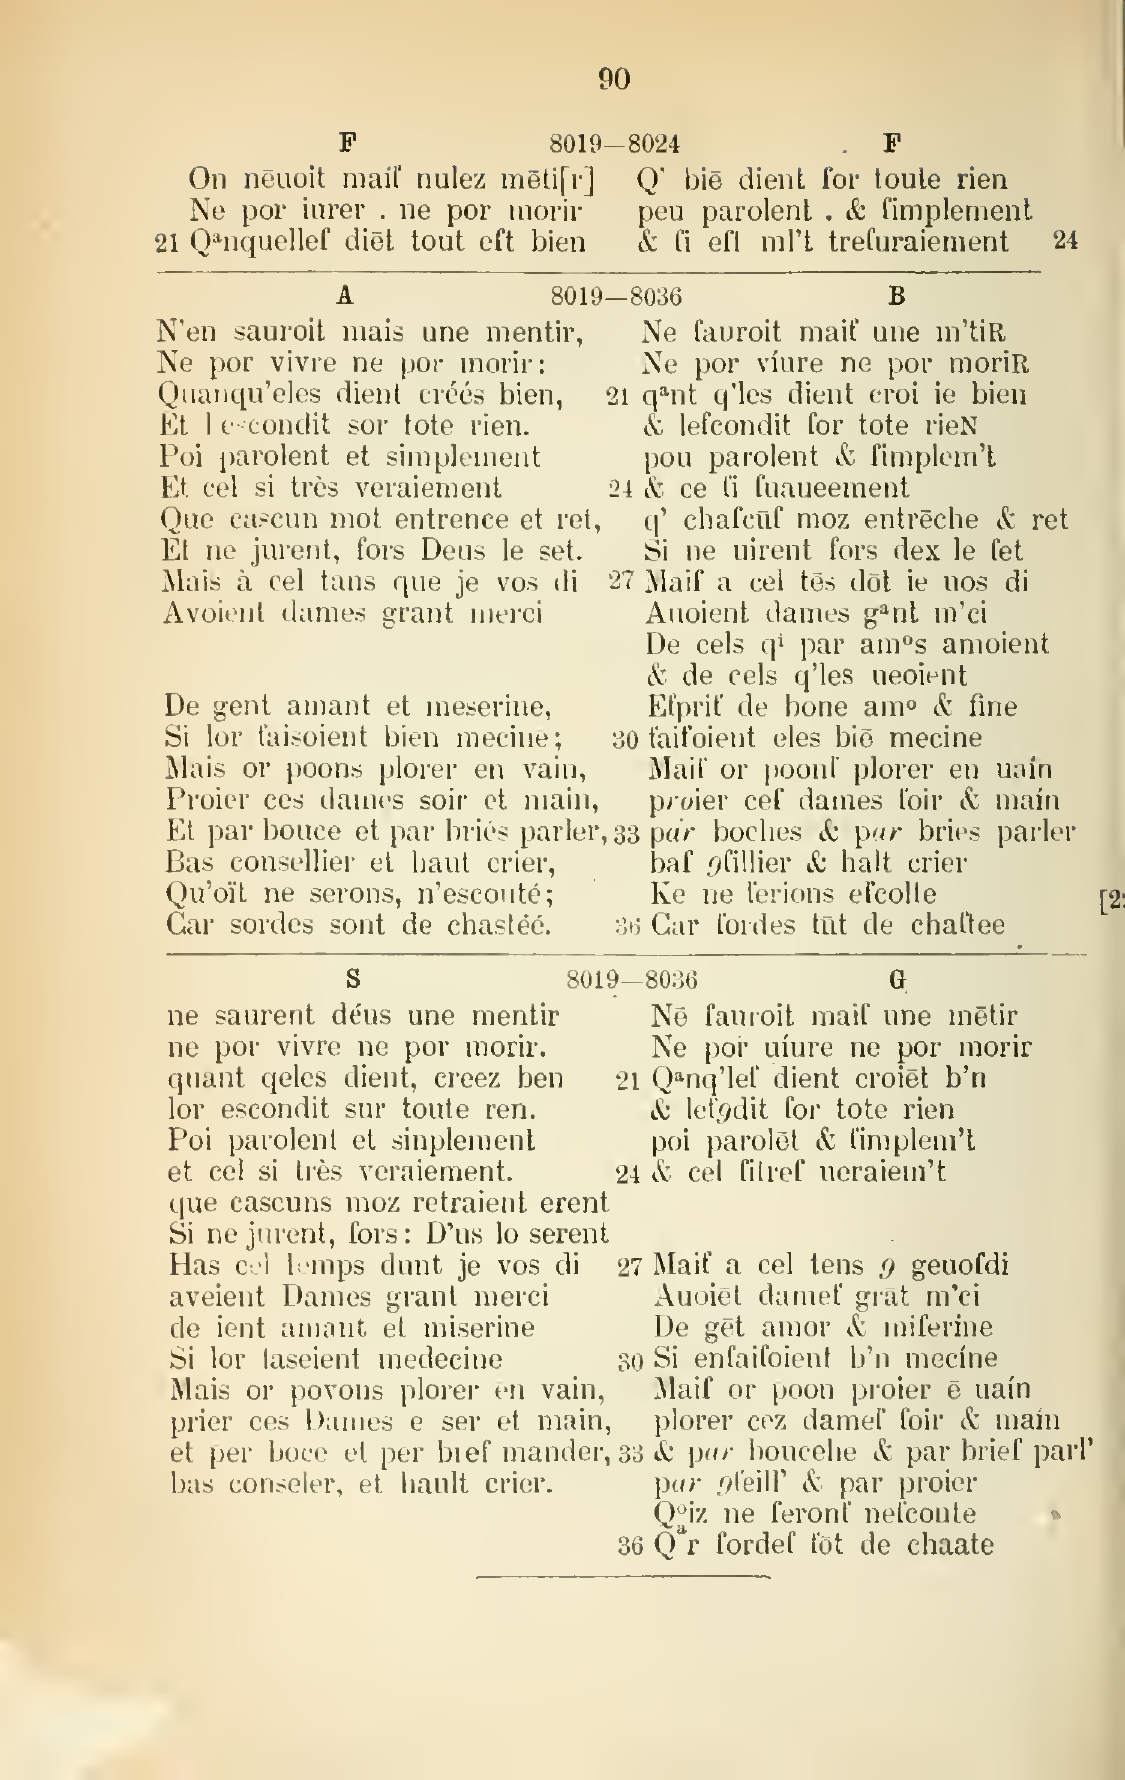 90
F 8019—8024 F
On nēuoit maiſ nulez mēti[r]
Ne por iurer . ne por morir
21 Qᵃnquelleſ diēt tout eſt bien
Q' biē dient ſor toute rien
peu parolent . & ſimplement
& ſi eſt ml't treſuraiement 24
A 8019—8036 B
N'en sauroit mais une mentir,
Ne por vivre ne por morir:
Quanqu'eles dient créés bien,
Et l escondit sor tote rien.
Poi parolent et simplement
Et cel si très veraiement
Que cascun mot entrence et ret,
Et ne jurent, fors Deus le set.
Mais à cel tans que je vos di
Avoient dames grant merci
De gent amant et meserine,
Si lor faisoient bien mecine;
Mais or poons plorer en vain,
Proier ces dames soir et main,
Et par bouce et par briés parler,
Bas consellier et haut crier,
Qu'oït ne serons, n'escouté;
Car sordes sont de chastéé.
Ne ſauroit maiſ une m'tiR
Ne por víure ne por moriR
21 qᵃnt q'les dient croi ie bien
& leſcondit ſor tote rieN
pou parolent & ſimplem't
24 & ce ſi ſuaueement
q' chaſcūſ moz entrēche & ret
Si ne uirent fors dex le ſet
27 Maiſ a cel tēs dōt ie uos di
Auoient dames gᵃnt m'ci
De cels qⁱ par amᵒs amoient
& de cels q'les ueoient
Eſpriſ de bone amᵒ & fine
30 faiſoient eles biē mecine
Maiſ or poonſ plorer en uaín
proier ceſ dames ſoir & maín
33 par boches & par bries parler
baſ ꝯſillier & halt crier
Ke ne ſerions eſcolte
36 Car ſordes ſūt de chaſtee
[2
S 8019—8036 G
ne saurent déus une mentir
ne por vivre ne por morir.
quant qeles dient, creez ben
lor escondit sur toute ren.
Poi parolent et sinplement
et cel si très veraiement.
que cascuns moz retraient erent
Si ne jurent, fors: D'us lo serent
Has cel temps dunt je vos di
aveient Dames grant merci
de ient amant et miserine
Si lor faseient medecine
Mais or povons plorer en vain,
prier ces Dames e ser et main,
et per boce et per bief mander,
bas conseler, et hault crier.
Nē ſauroit maiſ une mētir
Ne por uíure ne por morir
21 Qᵃnq'leſ dient croiēt b'n
& leſꝯdit ſor tote rien
poi parolēt & ſimplem't
24 & cel ſitreſ ueraiem't
27 Maiſ a cel tens ꝯ geuoſdi
Auoiēt dameſ grāt m'ci
De gēt amor & miſerine
30 Si enfaiſoient b'n mecíne
Maiſ or poon proier ē uaín
plorer cez dameſ ſoir & maín
33 & par bouceĥe & par brieſ parl'
par ꝯſeill' & par proier
Qᵒiz ne ſeronſ neſcoute
36 Qᵃr ſordeſ ſōt de chaate